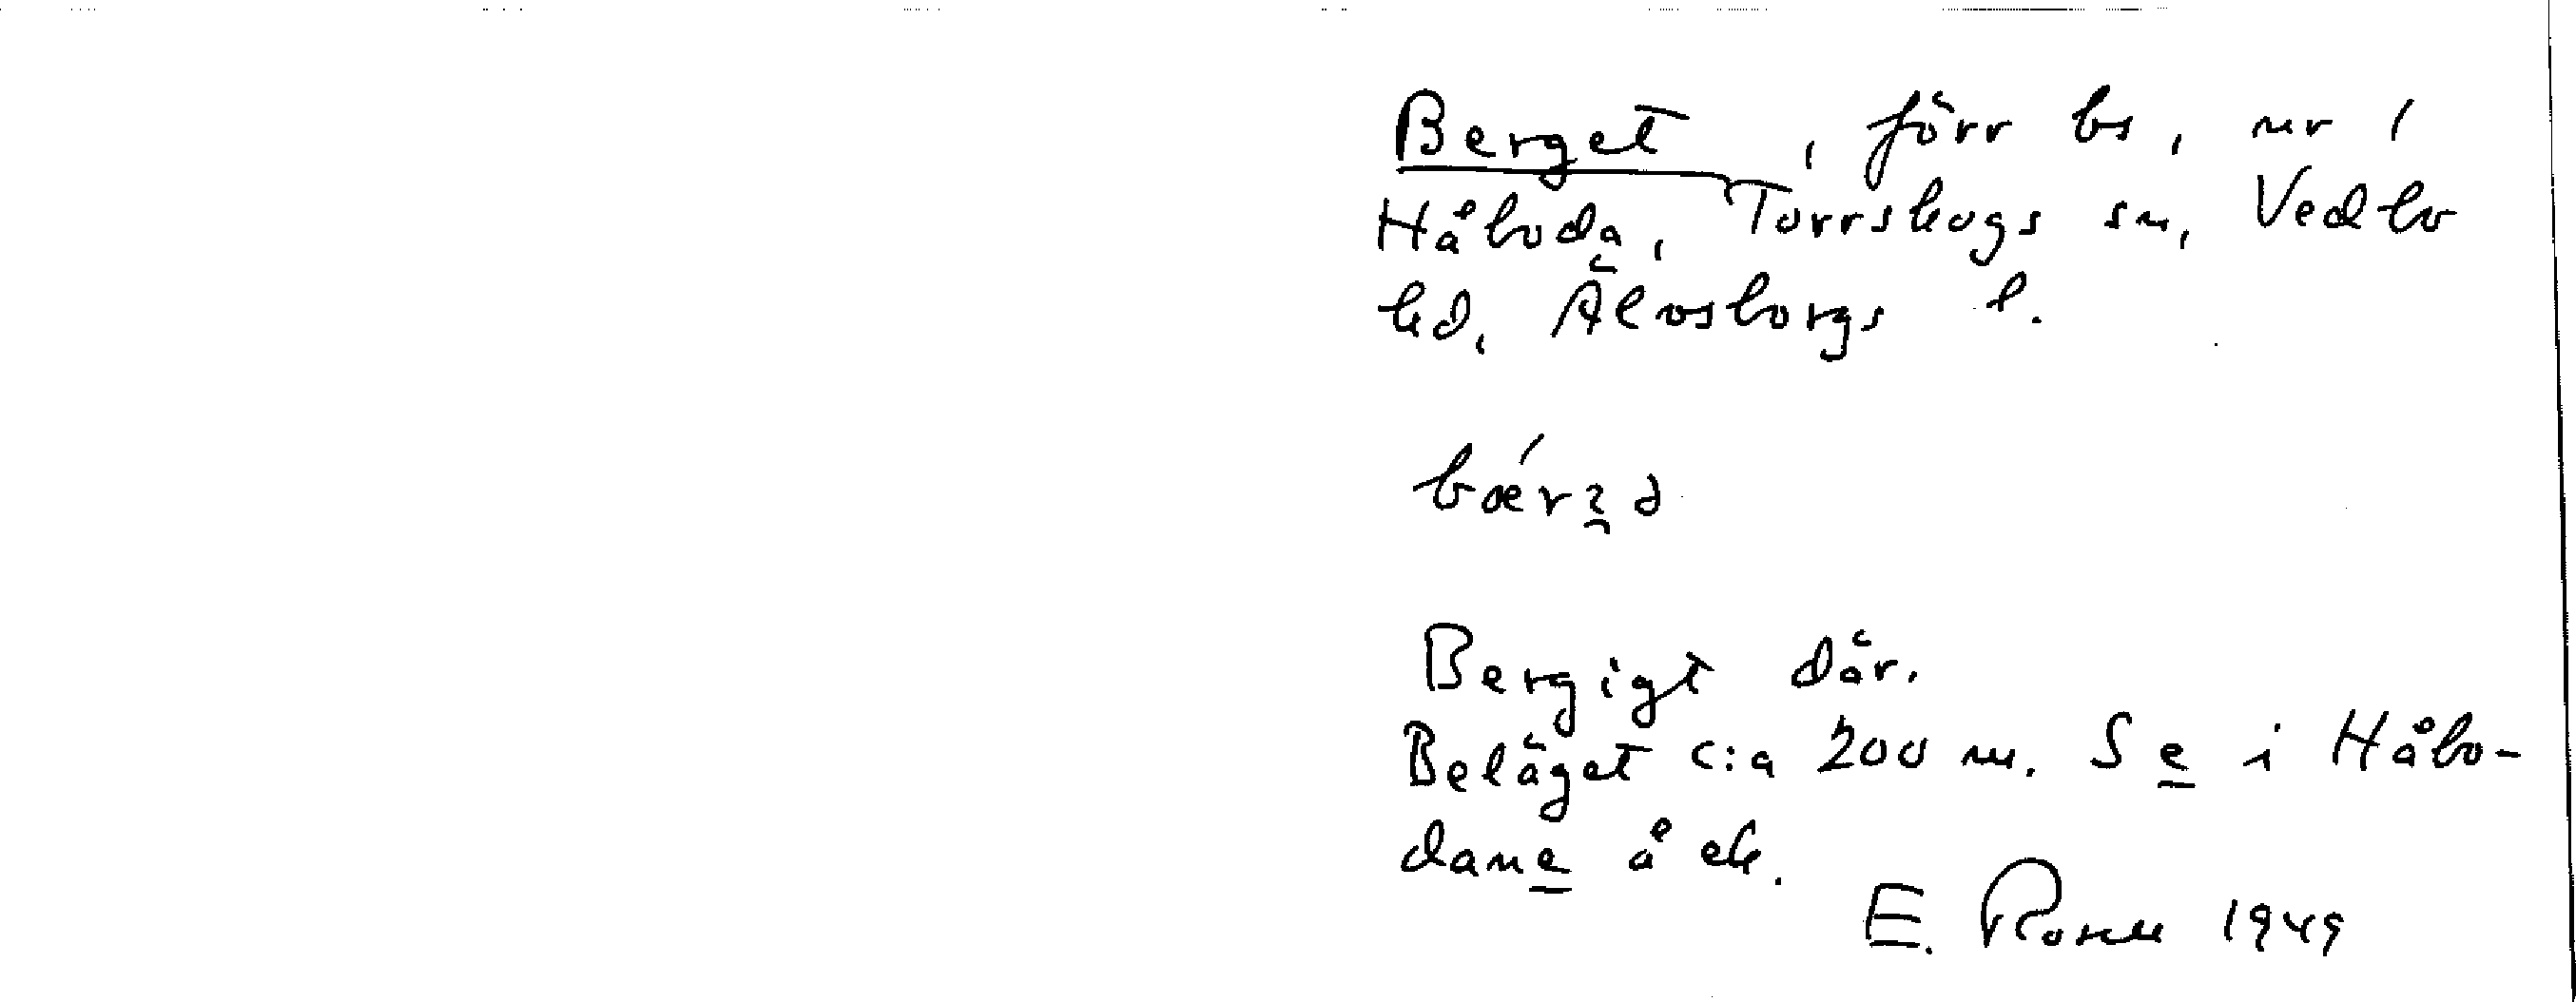 Berget, förr bs, nr 1
Håboda, Torrskogs sn, Vedbo
hd, Älvsborgs l.
Bergigt där.
Beläget c:a 200 m. S e i Håbo-
dane å ek.
E. 1949